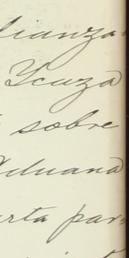 lianza
Ycaza
sobre
duana
rta par